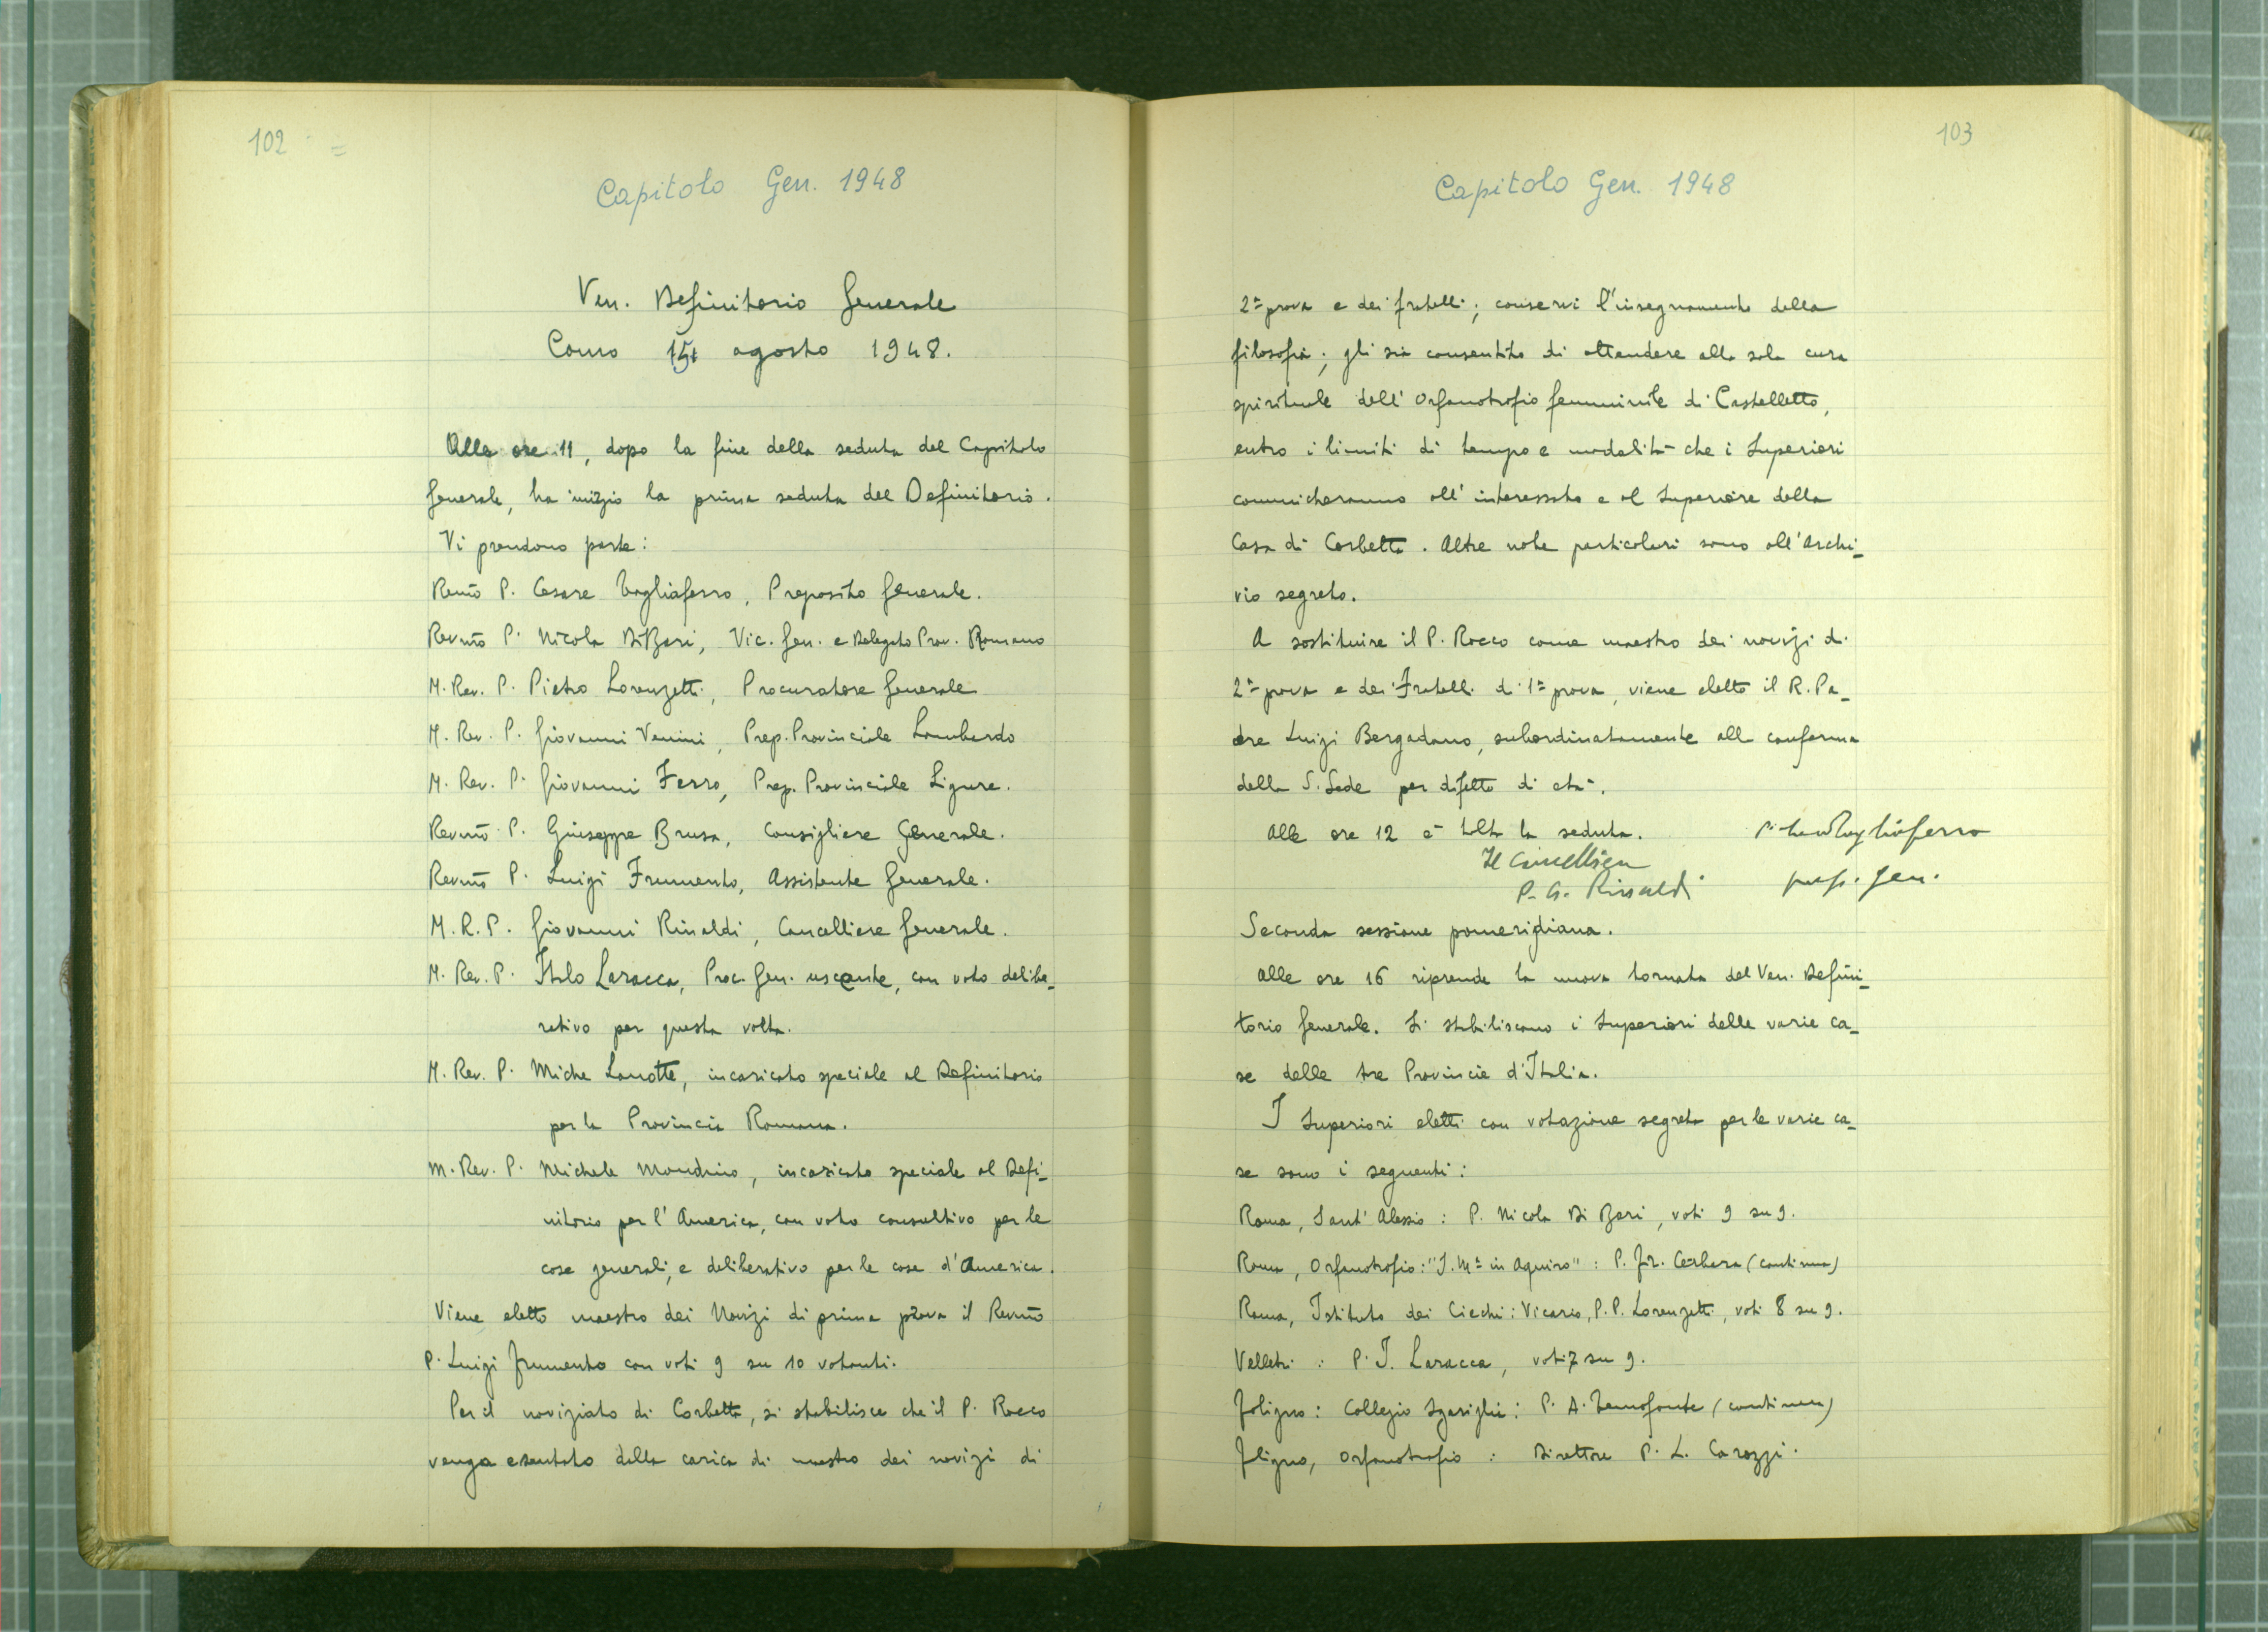 102 =
Capitolo Gen. 1948
Ven. Definitorio Generale
Como 15 agosto 1948.
Alle ore 11, dopo la fine della seduta del Capitolo
Generale, ha inizio la prima seduta del Definitorio.
Vi prendono parte:
Revmo P. Cesare Tagliaferro, Preposito Generale.
Revmo P. Nicola Di Bari, Vic. Gen. e Delegato Prov. Romano
M. Rev. P. Pietro Lorenzetti, Procuratore Generale
M. Rev. P. Giovanni Venini, Prep. Provinciale Lombardo
M. Rev. P. Giovanni Ferro, Prep. Provinciale Ligure.
Revmo P. Giuseppe Brusa, Consigliere Generale.
Revmo P. Luigi Frumento, Assistente Generale.
M. R. P. Giovanni Rinaldi, Cancelliere Generale.
M. Rev. P. Italo Laracca, Proc. Gen. uscente, con voto delibe-
rativo per questa volta.
M. Rev. P. Miche Lanotte, incaricato speciale al Definitorio
per la Provincia Romana.
M. Rev. P. Michele Mondino, incaricato speciale al Defi-
nitorio per l'America, con voto consultivo per le
cose generali, e deliberativo per le cose d'America.
Viene eletto maestro dei Novizi di prima prova il Revmo
P. Luigi Frumento con voti 9 su 10 votanti.
Per il noviziato di Corbetta, si stabilisce che il P. Rocco
venga esentato dalla carica di maestro dei novizi di
103
Capitolo Gen. 1948
2ª prova e dei fratelli; conservi l'insegnamento della
filosofia; gli sia consentito di attendere alla sola cura
spirituale dell'Orfanotrofio femminile di Castelletto,
entro i limiti di tempo e modalità che i Superiori
comunicheranno all'interessato e al Superiore della
Casa di Corbetta. Altre note particolari sono all'Archi-
vio segreto.
A sostituire il P. Rocco come maestro dei novizi di
2ª prova e dei Fratelli di 1ª prova, viene eletto il R. Pa-
dre Luigi Bergadano, subordinatamente alla conferma
della S. Sede per difetto di età.
Alle ore 12 è tolta la seduta. P. Tagliaferro
Il Cancelliere
P. G. Rinaldi prep. gen.
Seconda sessione pomeridiana.
Alle ore 16 riprende la nuova tornata del Ven. Defini-
torio Generale. Si stabiliscono i Superiori delle varie ca-
se delle tre Provincie d'Italia.
I Superiori eletti con votazione segreta per le varie ca-
se sono i seguenti:
Roma, Sant'Alessio: P. Nicola Di Bari, voti 9 su 9.
Roma, Orfanotrofio: "S. Mª in Aquiro": P. Fr. Cerbara (continua)
Roma, Istituto dei Ciechi: Vicario, P. P. Lorenzetti, voti 8 su 9.
Velletri: P. I. Laracca, voti 7 su 9.
Foligno: Collegio Sgariglia: P. A. Zenofonte (continua)
Fligno, Orfanotrofio: Direttore P. L. Carozzi.